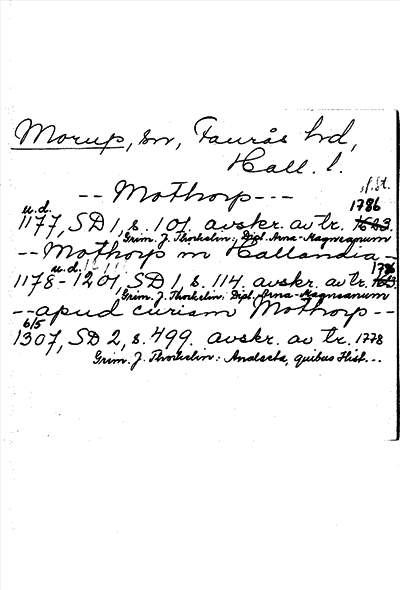 Morup, sn, Faurås hd,
Hall. l.
-- Mothorp ---
u.d. 1786
1177, SD 1, s. 101. avskr. av tr.
Grim. J. Thorkelin: Dipl. Arna-Magnæanum
-- Mothorp in Hallandia --
u.d. 1786
1178-1201, SD 1, s. 114. avskr. av tr.
Grim. J. Thorkelin: Dipl. Arna-Magnæanum
-- apud curiam Mothorp --
6/5
1307, SD 2, s. 499. avskr. av tr. 1778
Grim. J. Thorkelin: Analecta, quibus Hist...